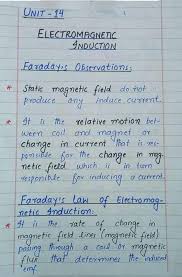 UNIT - 14
ELECTROMAGNETIC
INDUCTION
Faraday's Observations:
* Static magnetic field do not
produce any induce current.
* It is the relative motion bet-
ween coil and magnet or
change in current that is res-
ponsible for the change in mag-
netic field which is in turn
responsible for inducing a current.
Faraday's Law of Electromag-
netic Induction:
* It is the rate of change in
magnetic field lines (magnetic field)
passing through a coil or magnetic
flux that determines the induced
emf.